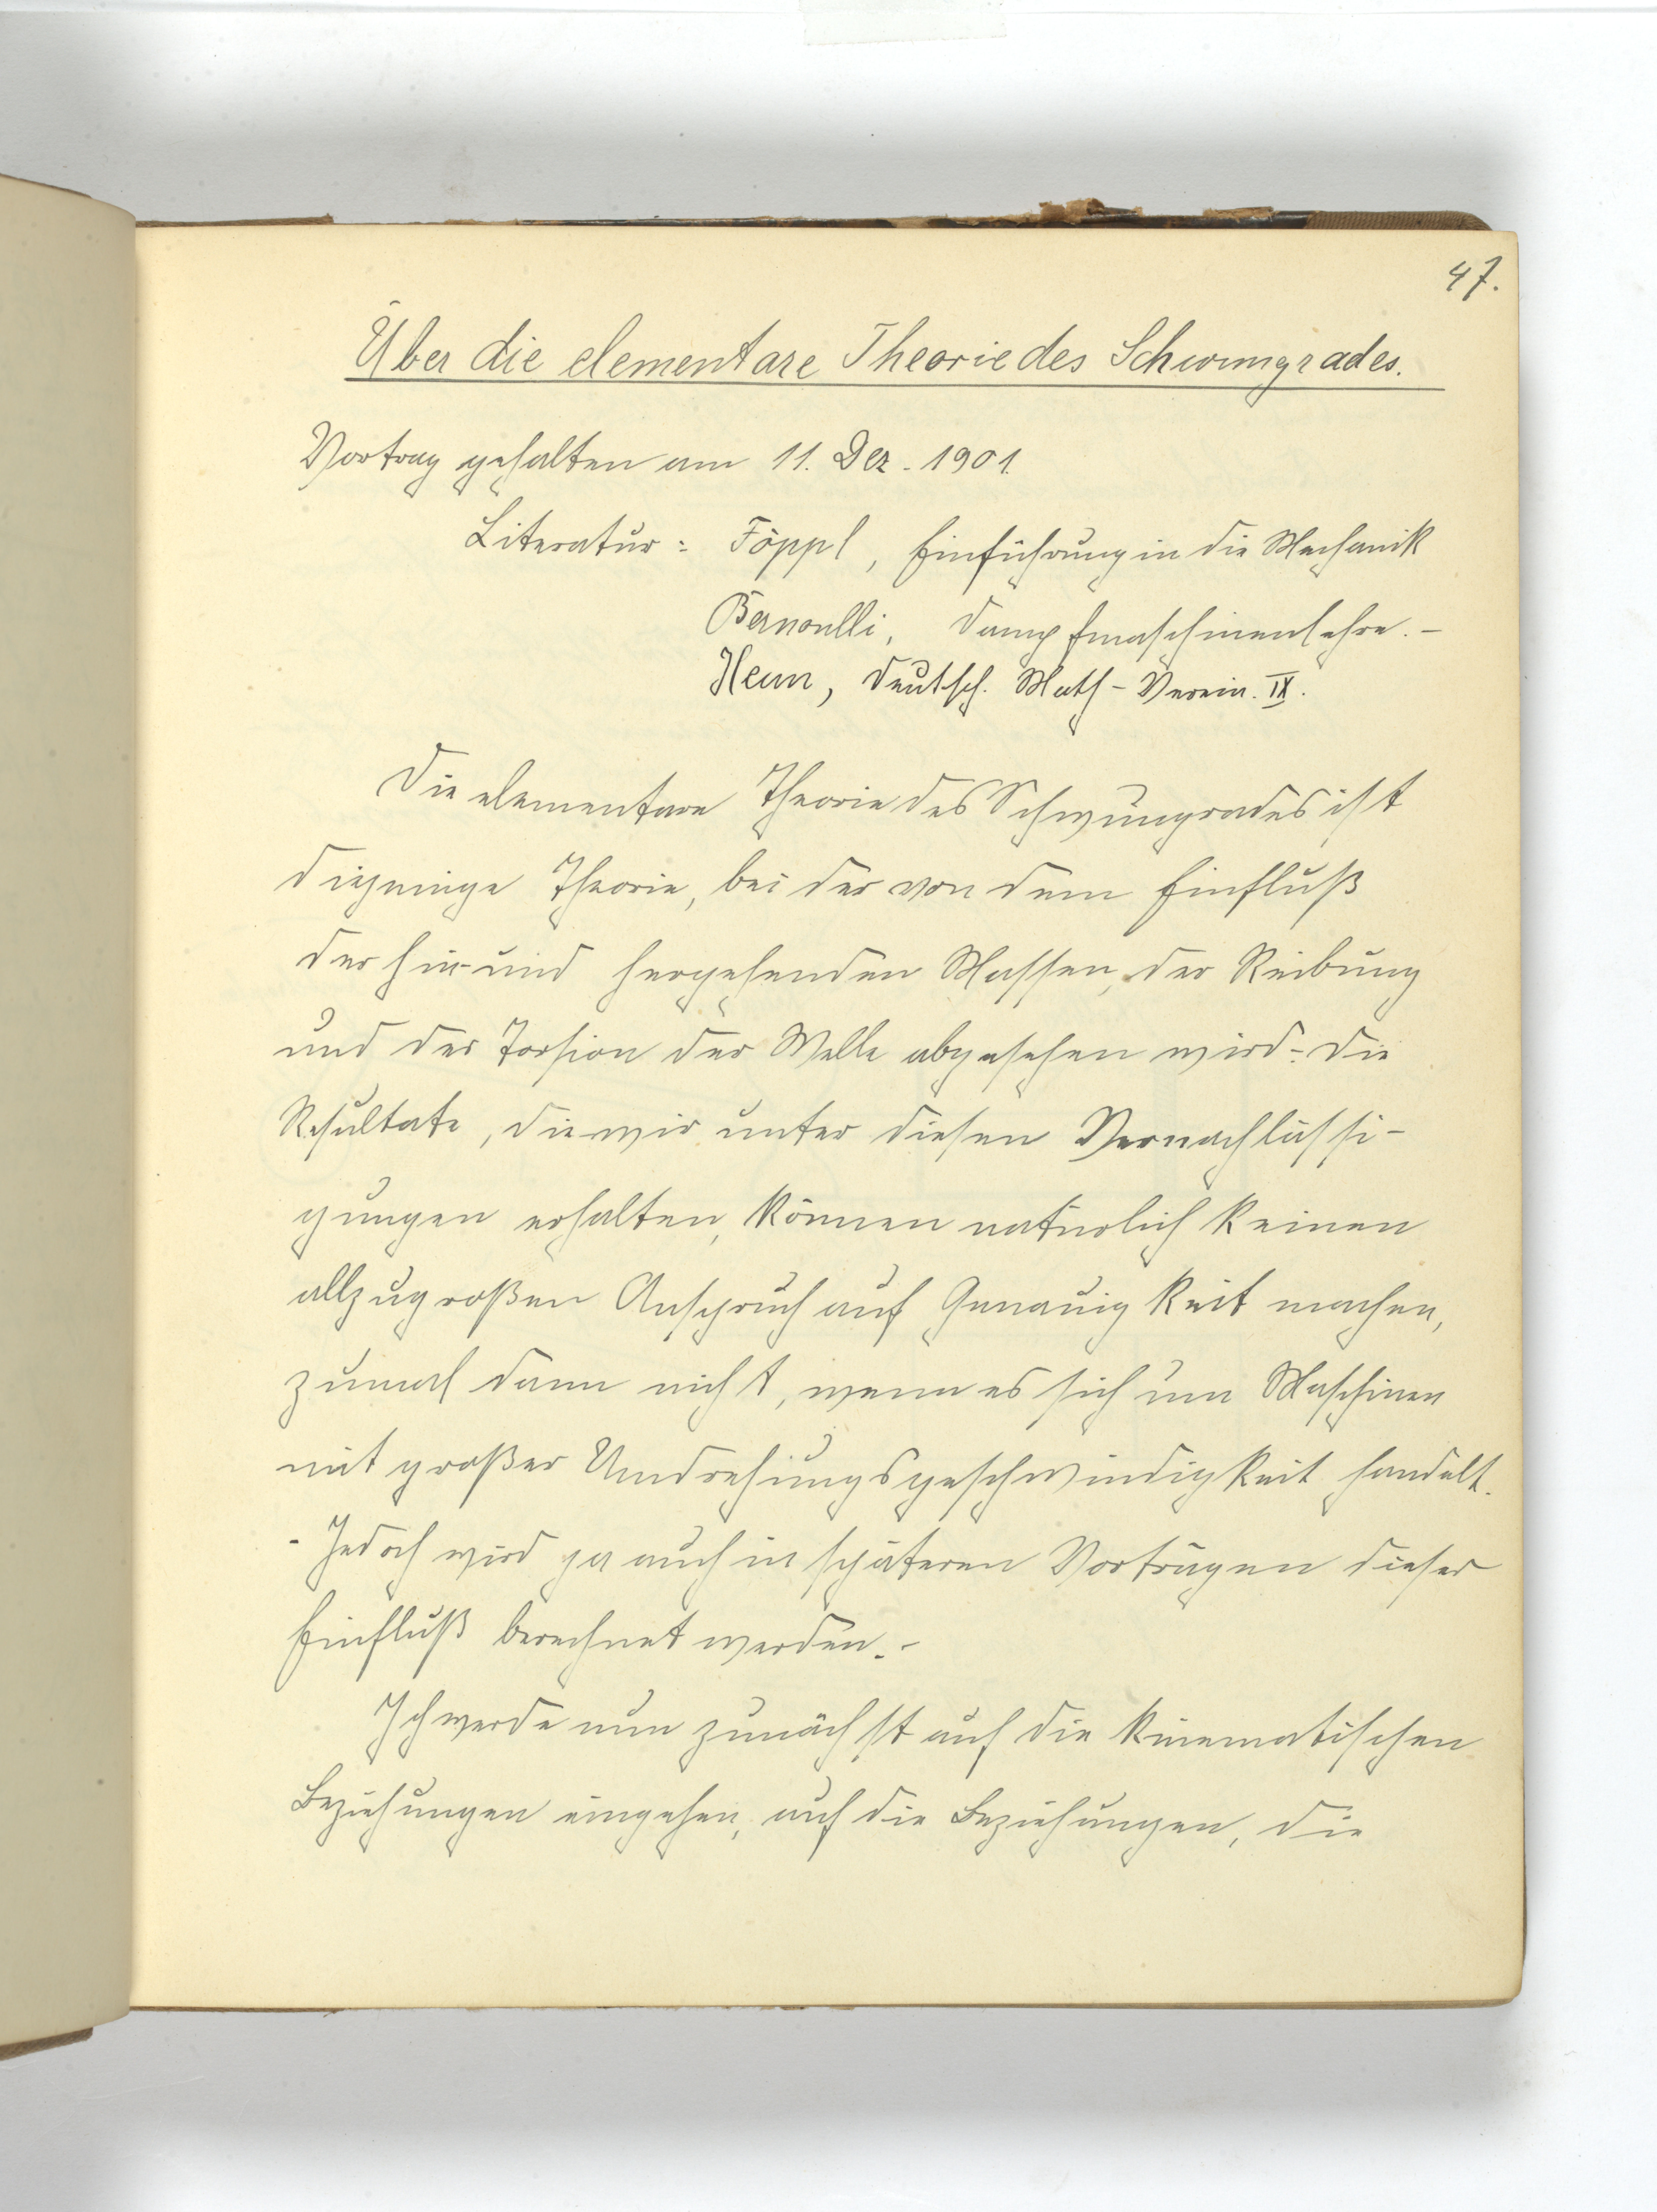 47.
Über die elementare Theorie des Schwungrades.
Vortrag gehalten am 11. Dez. 1901.
Literatur: Föppl, Einführung in die Mechanik
Bernoulli, Dampfmaschinenlehre. –
Heun, Deutsch. Math-Verein. IX.
Die elementare Theorie des Schwungrades ist
diejenige Theorie, bei der von dem Einfluß
der hin- und hergehenden Massen, der Reibung
und der Torsion der Welle abgesehen wird. Die
Resultate, die wir unter diesen Vernachlässi-
gungen erhalten, können natürlich keinen
allzugroßen Anspruch auf Genauigkeit machen,
zumal dann nicht, wenn es sich um Maschinen
mit großer Umdrehungsgeschwindigkeit handelt.
- Jedoch wird ja auch in späteren Vorträgen dieser
Einfluß berechnet werden. –
Ich werde nun zunächst auf die kinematischen
Beziehungen eingehen, auf die Beziehungen, die